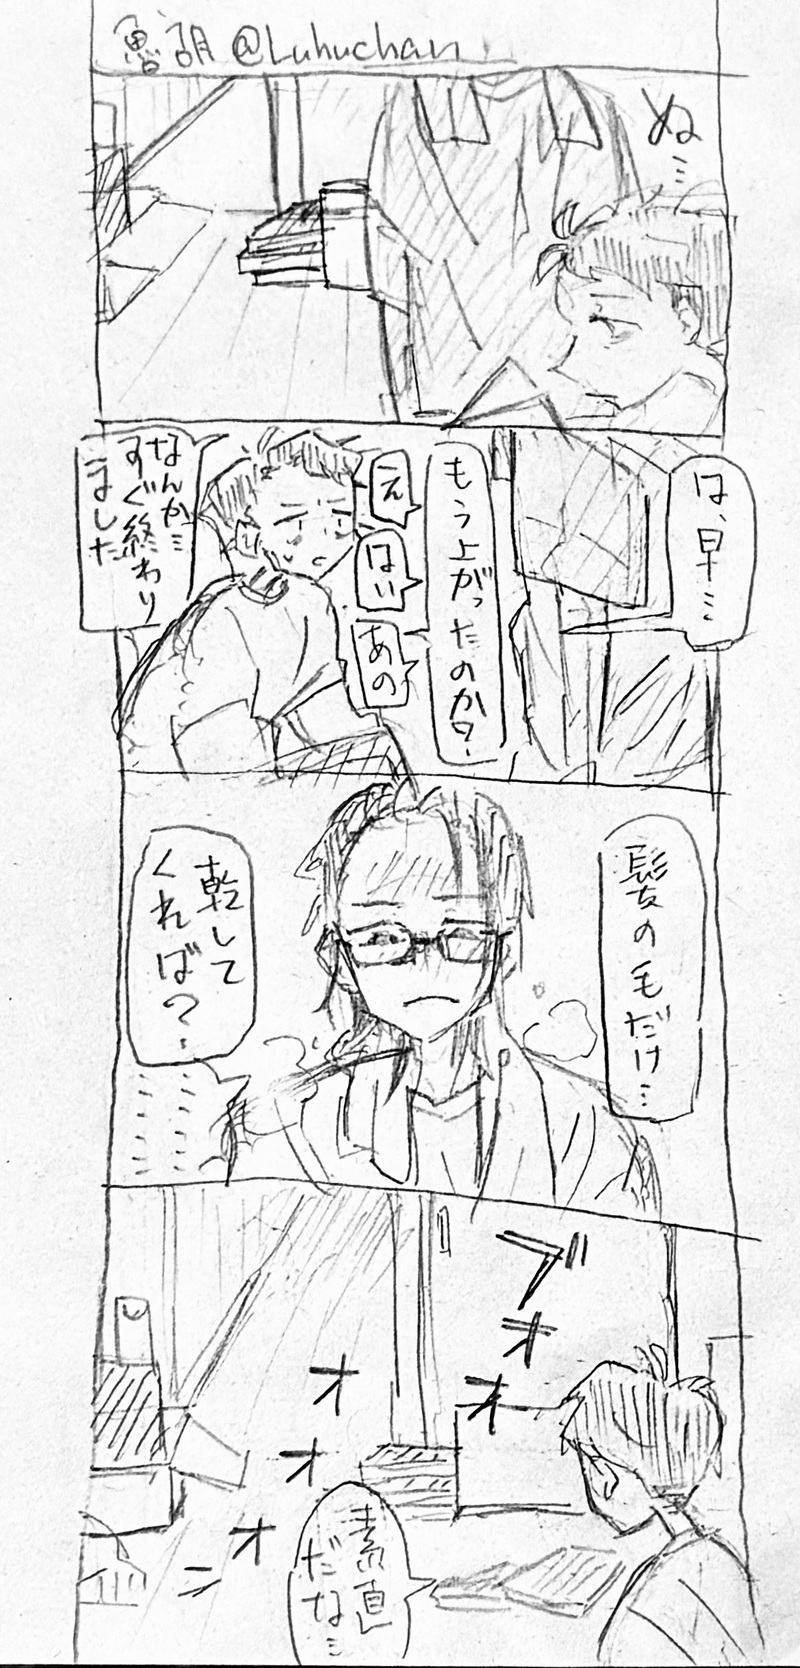 魯胡 @Luhuchan
ぬ…
は、早…
もう上がったのか?
え
はい
あの
なんか…
すぐ終わり
ました
髪の毛だけ…
乾して
くれば?
ブオオオオオ
素直
だな…